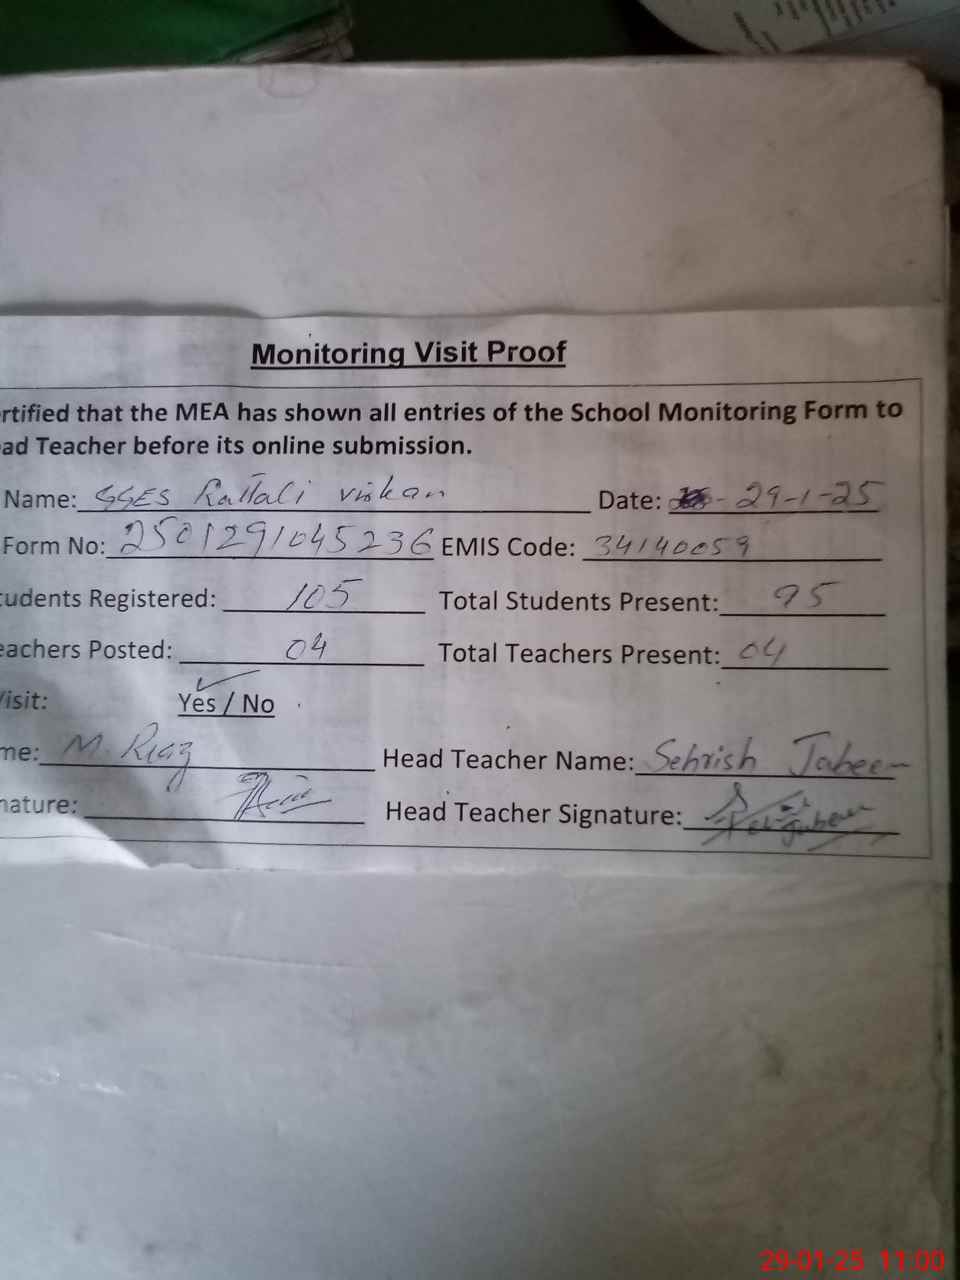 Monitoring Visit Proof
rtified that the MEA has shown all entries of the School Monitoring Form to
ad Teacher before its online submission.
Name: GGES Rattali virkan Date: - 29-1-25
Form No: 2501291045236 EMIS Code: 34140059
tudents Registered: 105 Total Students Present: 95
eachers Posted: 04 Total Teachers Present: 04
Visit: Yes / No
me: M. Riaz Head Teacher Name: Sehrish Jabeen
nature: Head Teacher Signature:
29-01-25 11:00